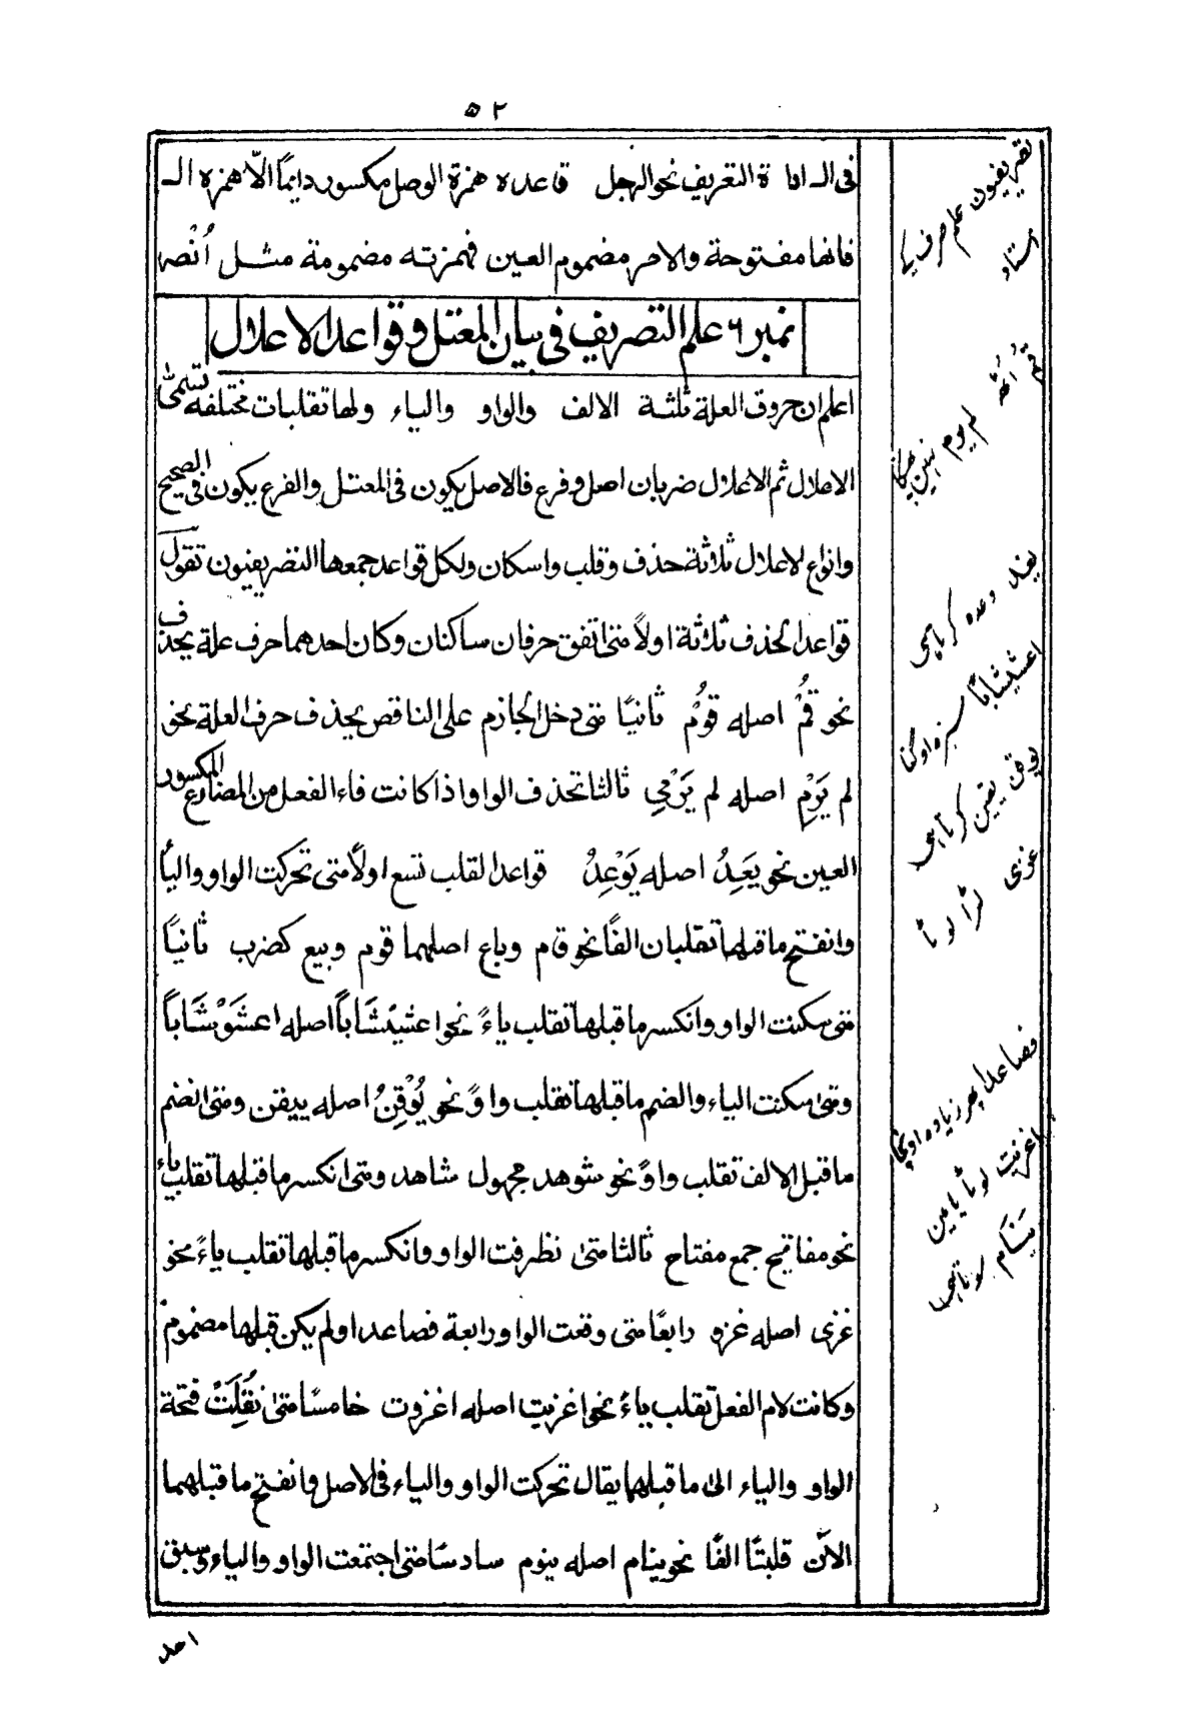 ٥٢
فى الـ اداة التعريف نحو الرجل قاعده همزة الوصل مكسور دايمًا الّا همزه الـ
فانها مفتوحة والامر مضموم العين فهمزته مضمومة مثل اُنْصر
نمبر ٦ علم التصريف فى بيان المعتل وقواعد الاعلال
اعلم ان حروف العلة ثلثة الالف والواو والياء ولها تقلبات مختلفه تسمىٰ
الاعلال ثم الاعلال ضربان اصل وفرع فالاصل يكون فى المعتل والفرع يكون فى الصحيح
وانواع لاعلال ثلاثة حذف وقلب واسكان ولكل قواعد جمعها التصريفيون تقول
قواعد الحذف ثلاثة اولاً متى اتفق حرفان ساكنان وكان احدهما حرف علة يحذف
نحو قُمْ اصله قوُمْ ثانيًا متى دخل الجازم على الناقص يحذف حرف العلة نحو
لم يَرْمِ اصله لم يَرْمِي ثالثا تحذف الواو اذا كانت فاء الفعل من المضارع المكسور
العين نحو يَعِدُ اصله يَوْعِدُ قواعد القلب تسع اولاً متى تحركت الواو والياُ
وانفتح ما قبلها تقلبان الفًا نحو قام وباع اصلهما قوم وبيع كضرب ثانيًا
متى سكنت الواو وانكسر ما قبلها تقلب ياءً نحو اعشيشَاباً اصله اعشَوْشَاباً
ومتى سكنت الياء والضم ما قبلها تقلب واوً نحو يُوْقِنُ اصله ييقن ومتى انضم
ما قبل الالف تقلب واوً نحو شوهد مجهول شاهد ومتى انكسر ما قبلها تقلب ياء
نحو مفاتيح جمع مفتاح ثالثا متىٰ نظرفت الواو وانكسر ما قبلها تقلب ياءً نحو
غزى اصله غزو رابعًا متى وقعت الواو رابعة فصاعدا ولم يكن قبلها مضموم
وكانت لام الفعل تقلب ياءُ نحو اغزيت اصله اغزوت خامسًا متىٰ نُقِلَتْ فتحة
الواو والياء الىٰ ما قبلهما يقال تحركت الواو والياء فى الاصل وانفتح ما قبلهما
الآن قلبتا الفًا نحو ينام اصله ينوم سادسًا متى اجتمعت الواو والياء وسبق
احد
تصريفيون علم صرف كے
استاد
قم اُٹھ
لم يرم نہين پھينكا
يعد وعده كرتا ہے
اعشيشابًا سبزه اوگنا
يوقن يقين كرتا ہے
غزى لڑا لوٹا
فصاعدا پھر زياده اونچا
اغزيت لوٹا يا مين
يَنَام سوتا ہے